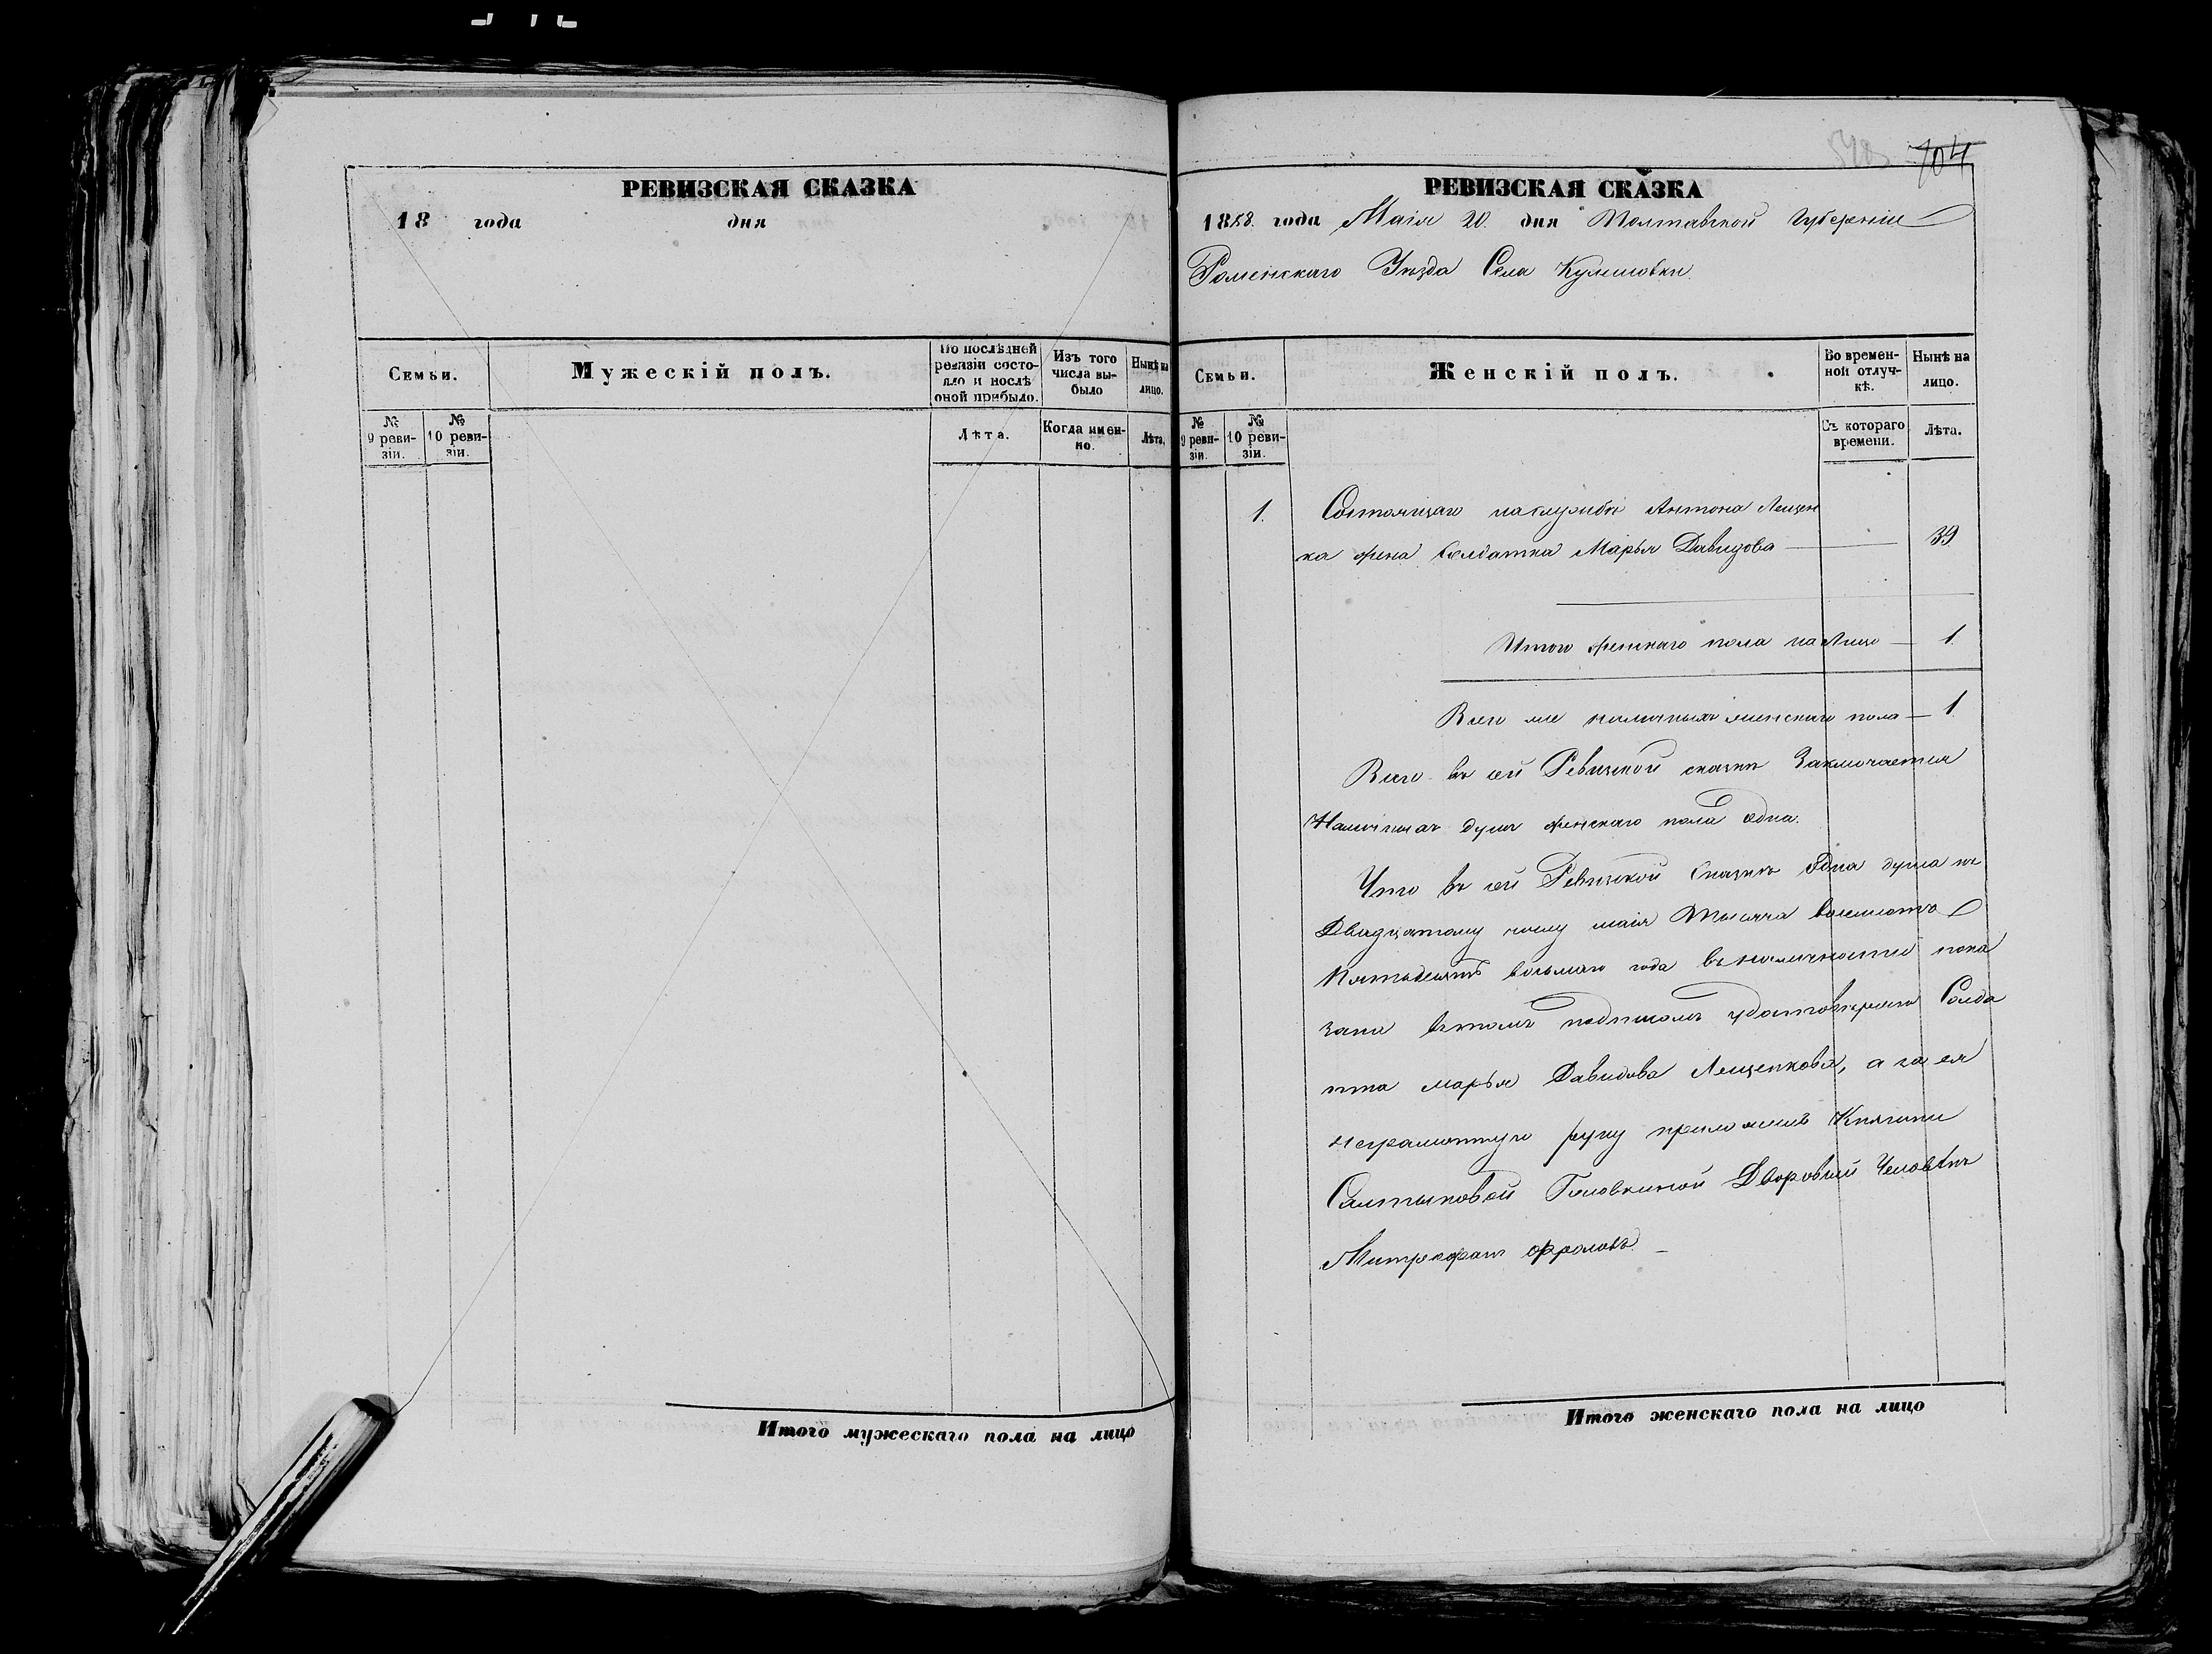 РЕВИЗСКАЯ СКАЗКА
18 года дня
Семьи.
Мужескій полъ.
По послѣдней ревизіи состояло и послѣ оной прибыло.
Изъ того числа выбыло
Нынѣ на лицо.
№ 9 ревизіи.
№ 10 ревизіи.
Лѣта.
Когда именно.
Лѣта.
Итого мужескаго пола на лицо
704
РЕВИЗСКАЯ СКАЗКА
1858. года Маія 20. дня Полтавской Губерніи
Роменскаго Уѣзда Села Кулишовки.
Семьи.
Женскій полъ.
Во временной отлучкѣ.
Нынѣ на лицо.
№ 9 ревизіи.
№ 10 ревизіи.
Съ котораго времени.
Лѣта.
1. Состоящаго на службѣ Антона Лещен
ка жена Солдатка Марья Давидова — 39
Итого женскаго пола на Лицо — 1.
Всего же наличныхъ женскаго пола — 1.
Всего въ сей Ревизской сказкѣ Заключается
Наличныхъ душъ женскаго пола одна.
Что въ сей Ревизской Сказкѣ Одна душа къ
Двадцатому числу маія Тысяча восемьсотъ
Пятьдесятъ восьмаго года въ наличности пока
зана въ томъ подписомъ удостовѣряю Солда
тка марья Давидова Лещенкова, а за ея
неграмотную руку приложилъ Княгини
Салтыковой Головкиной Дворовый Человѣкъ
Митрофанъ Фроловъ. —
Итого женскаго пола на лицо